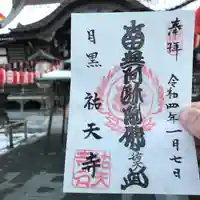 奉拝
令和四年一月七日
南無阿弥陀佛
目黒
祐天寺